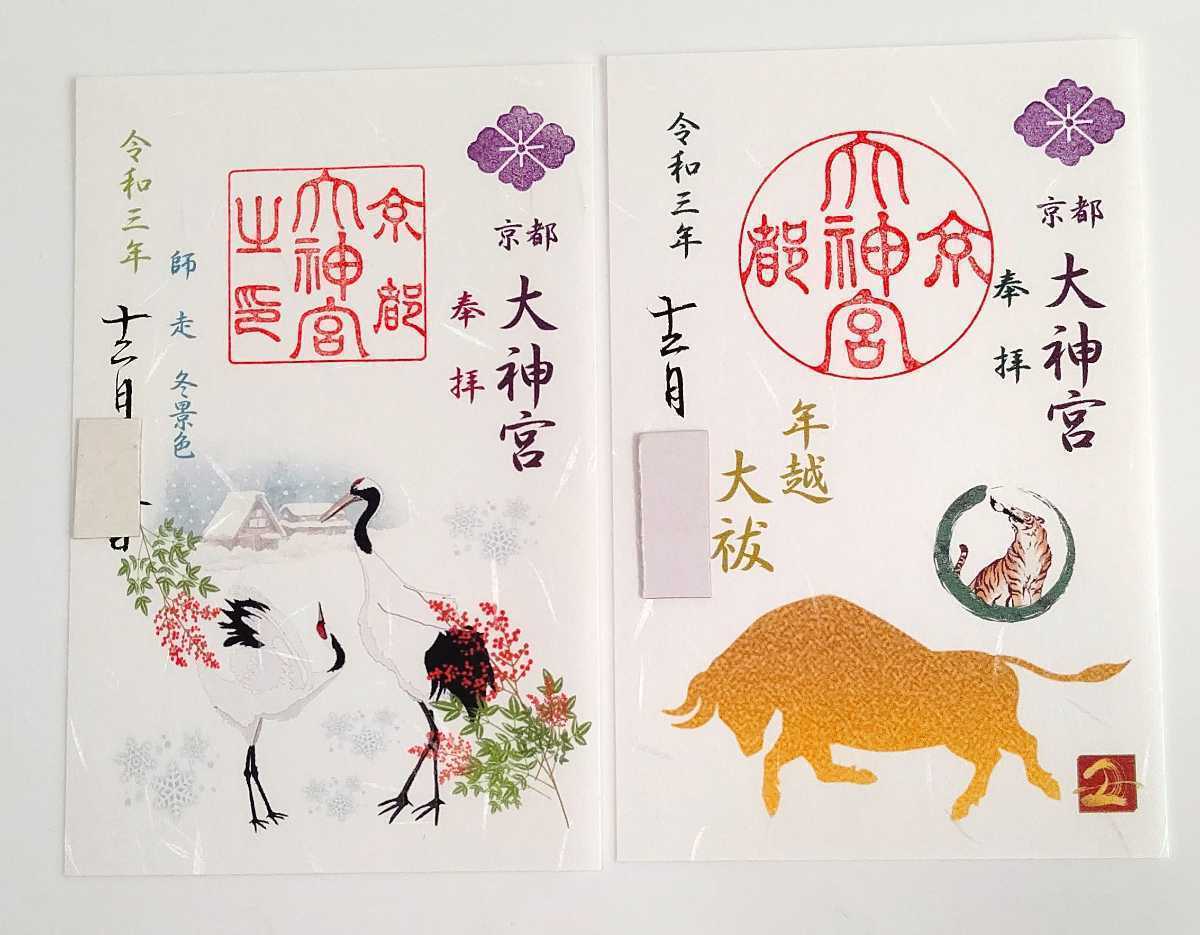 京都
大神宮
奉拝
京都
大神宮
之印
師走 冬景色
令和三年
十二月
日
京都
大神宮
奉拝
京
大神宮
都
年越
大祓
令和三年
十二月